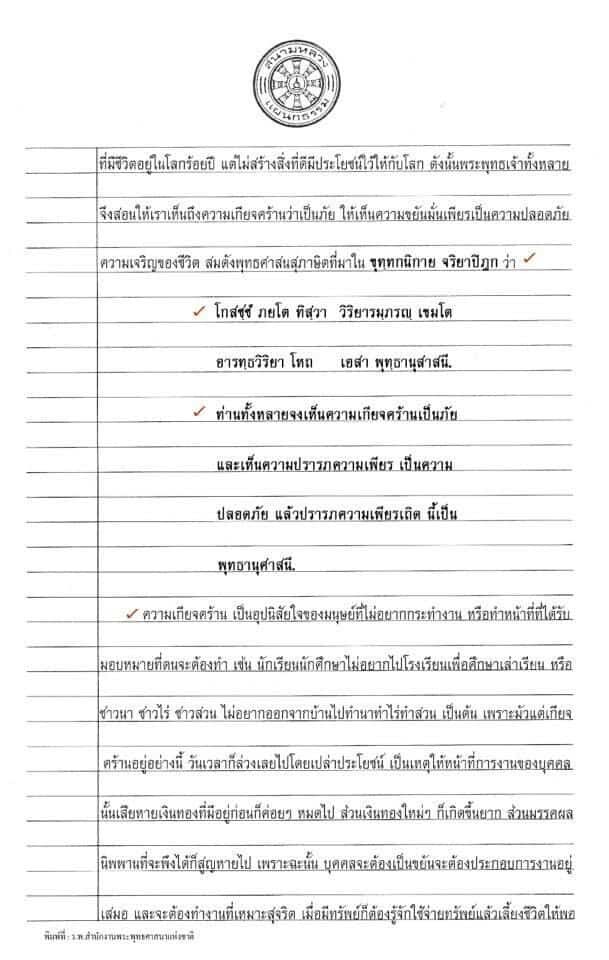 สนามหลวง
แผนกธรรม
ที่มีชีวิตอยู่ในโลกร้อยปี แต่ไม่สร้างสิ่งที่ดีมีประโยชน์ไว้ให้กับโลก ดังนั้นพระพุทธเจ้าทั้งหลาย
จึงสอนให้เราเห็นถึงความเกียจคร้านว่าเป็นภัย ให้เห็นความขยันมั่นเพียรเป็นความปลอดภัย
ความเจริญของชีวิต สมดังพุทธศาสนสุภาษิตที่มาใน ขุททกนิกาย จริยาปิฎก ว่า
โกสชฺชํ ภยโต ทิสฺวา วิริยารมฺภรญฺ เขมโต
อารทฺธวิริยา โหถ เอสา พุทฺธานุสาสนี.
ท่านทั้งหลายจงเห็นความเกียจคร้านเป็นภัย
และเห็นความปรารภความเพียร เป็นความ
ปลอดภัย แล้วปรารภความเพียรเถิด นี้เป็น
พุทธานุศาสนี.
ความเกียจคร้าน เป็นอุปนิสัยใจของมนุษย์ที่ไม่อยากกระทำงาน หรือทำหน้าที่ที่ได้รับ
มอบหมายที่ตนจะต้องทำ เช่น นักเรียนนักศึกษาไม่อยากไปโรงเรียนเพื่อศึกษาเล่าเรียน หรือ
ชาวนา ชาวไร่ ชาวสวน ไม่อยากออกจากบ้านไปทำนาทำไร่ทำสวน เป็นต้น เพราะมัวแต่เกียจ
คร้านอยู่อย่างนี้ วันเวลาก็ล่วงเลยไปโดยเปล่าประโยชน์ เป็นเหตุให้หน้าที่การงานของบุคคล
นั้นเสียหายเงินทองที่มีอยู่ก่อนก็ค่อยๆ หมดไป ส่วนเงินทองใหม่ๆ ก็เกิดขึ้นยาก ส่วนมรรคผล
นิพพานที่จะพึงได้ก็สูญหายไป เพราะฉะนั้น บุคคลจะต้องเป็นขยันจะต้องประกอบการงานอยู่
เสมอ และจะต้องทำงานที่เหมาะสุจริต เมื่อมีทรัพย์ก็ต้องรู้จักใช้จ่ายทรัพย์แล้วเลี้ยงชีวิตให้พอ
พิมพ์ที่ : ร.พ.สำนักงานพระพุทธศาสนาแห่งชาติ